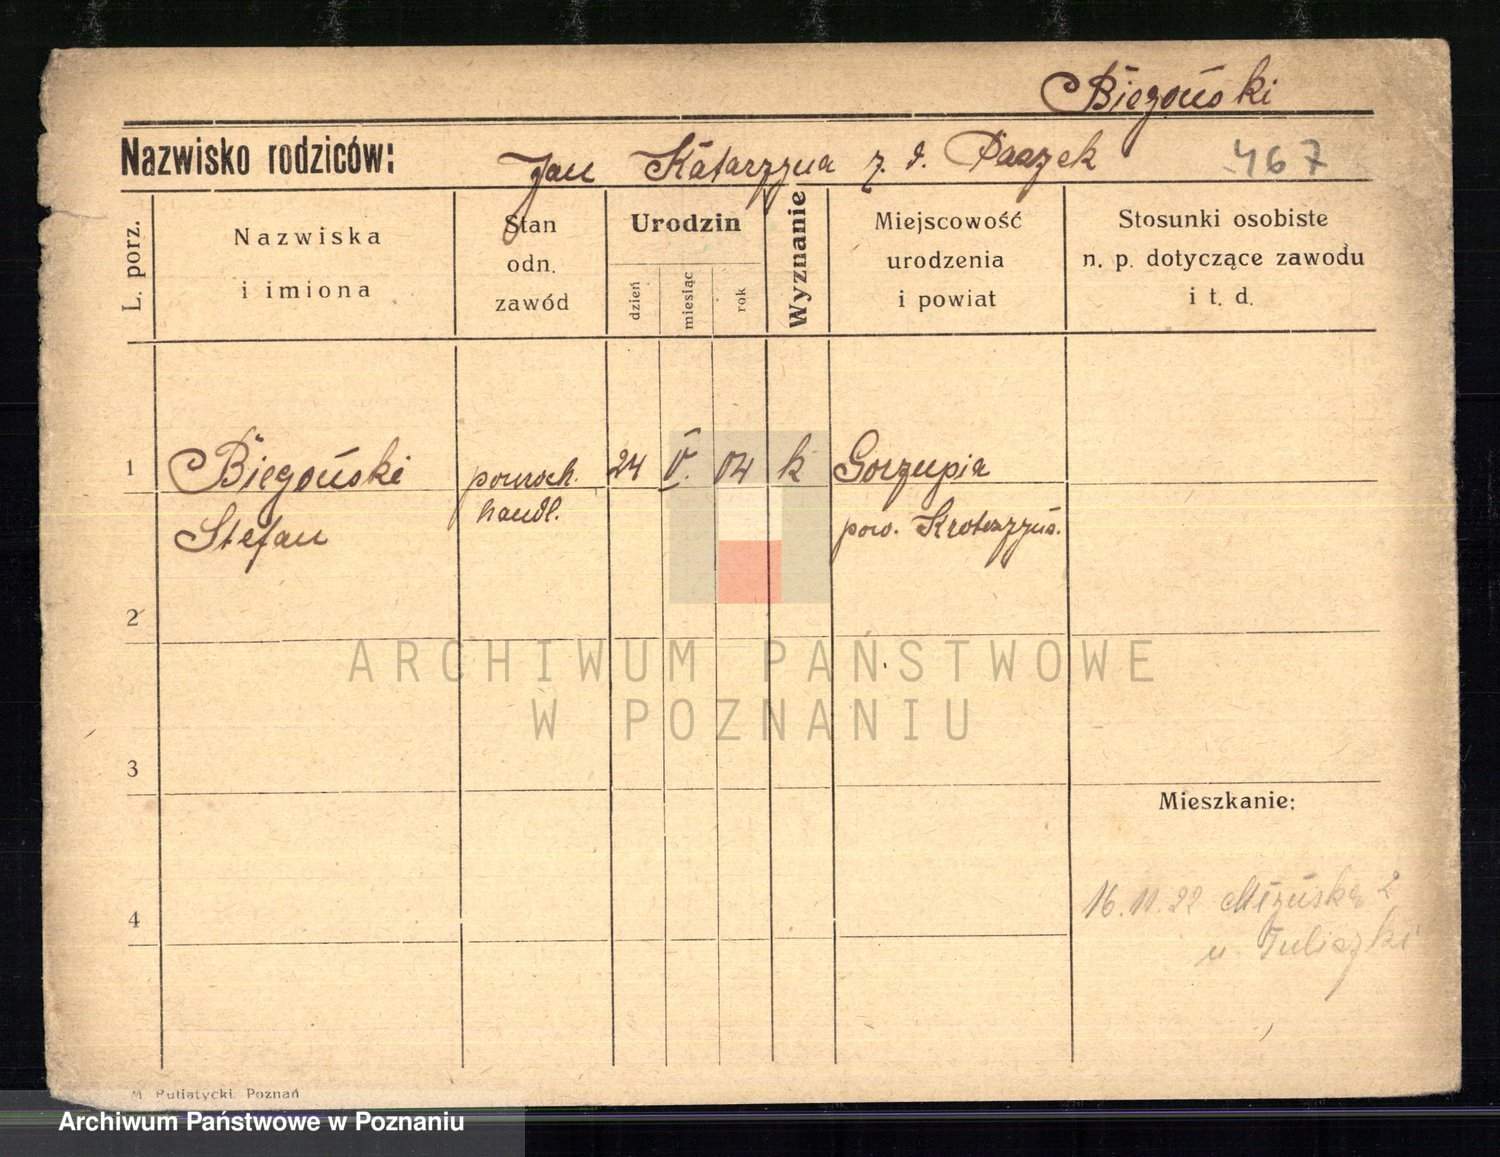 Biegoński
Nazwisko rodziców: Jan Katarzyna z. d. Paszek 467
L. porz.
Nazwiska
i imiona
Stan
odn.
zawód
Urodzin
dzień
miesiąc
rok
Wyznanie
Miejscowość
urodzenia
i powiat
Stosunki osobiste
n. p. dotyczące zawodu
i t. d.
1 Biegoński handl. 24 V. 04 k Gorzupia
Stefan pow. Krotoszyńs.
2
3
Mieszkanie:
4
16.11.22 2
u.
M. Putiatycki. Poznań
ARCHIWUM PAŃSTWOWE
W POZNANIU
Archiwum Państwowe w Poznaniu